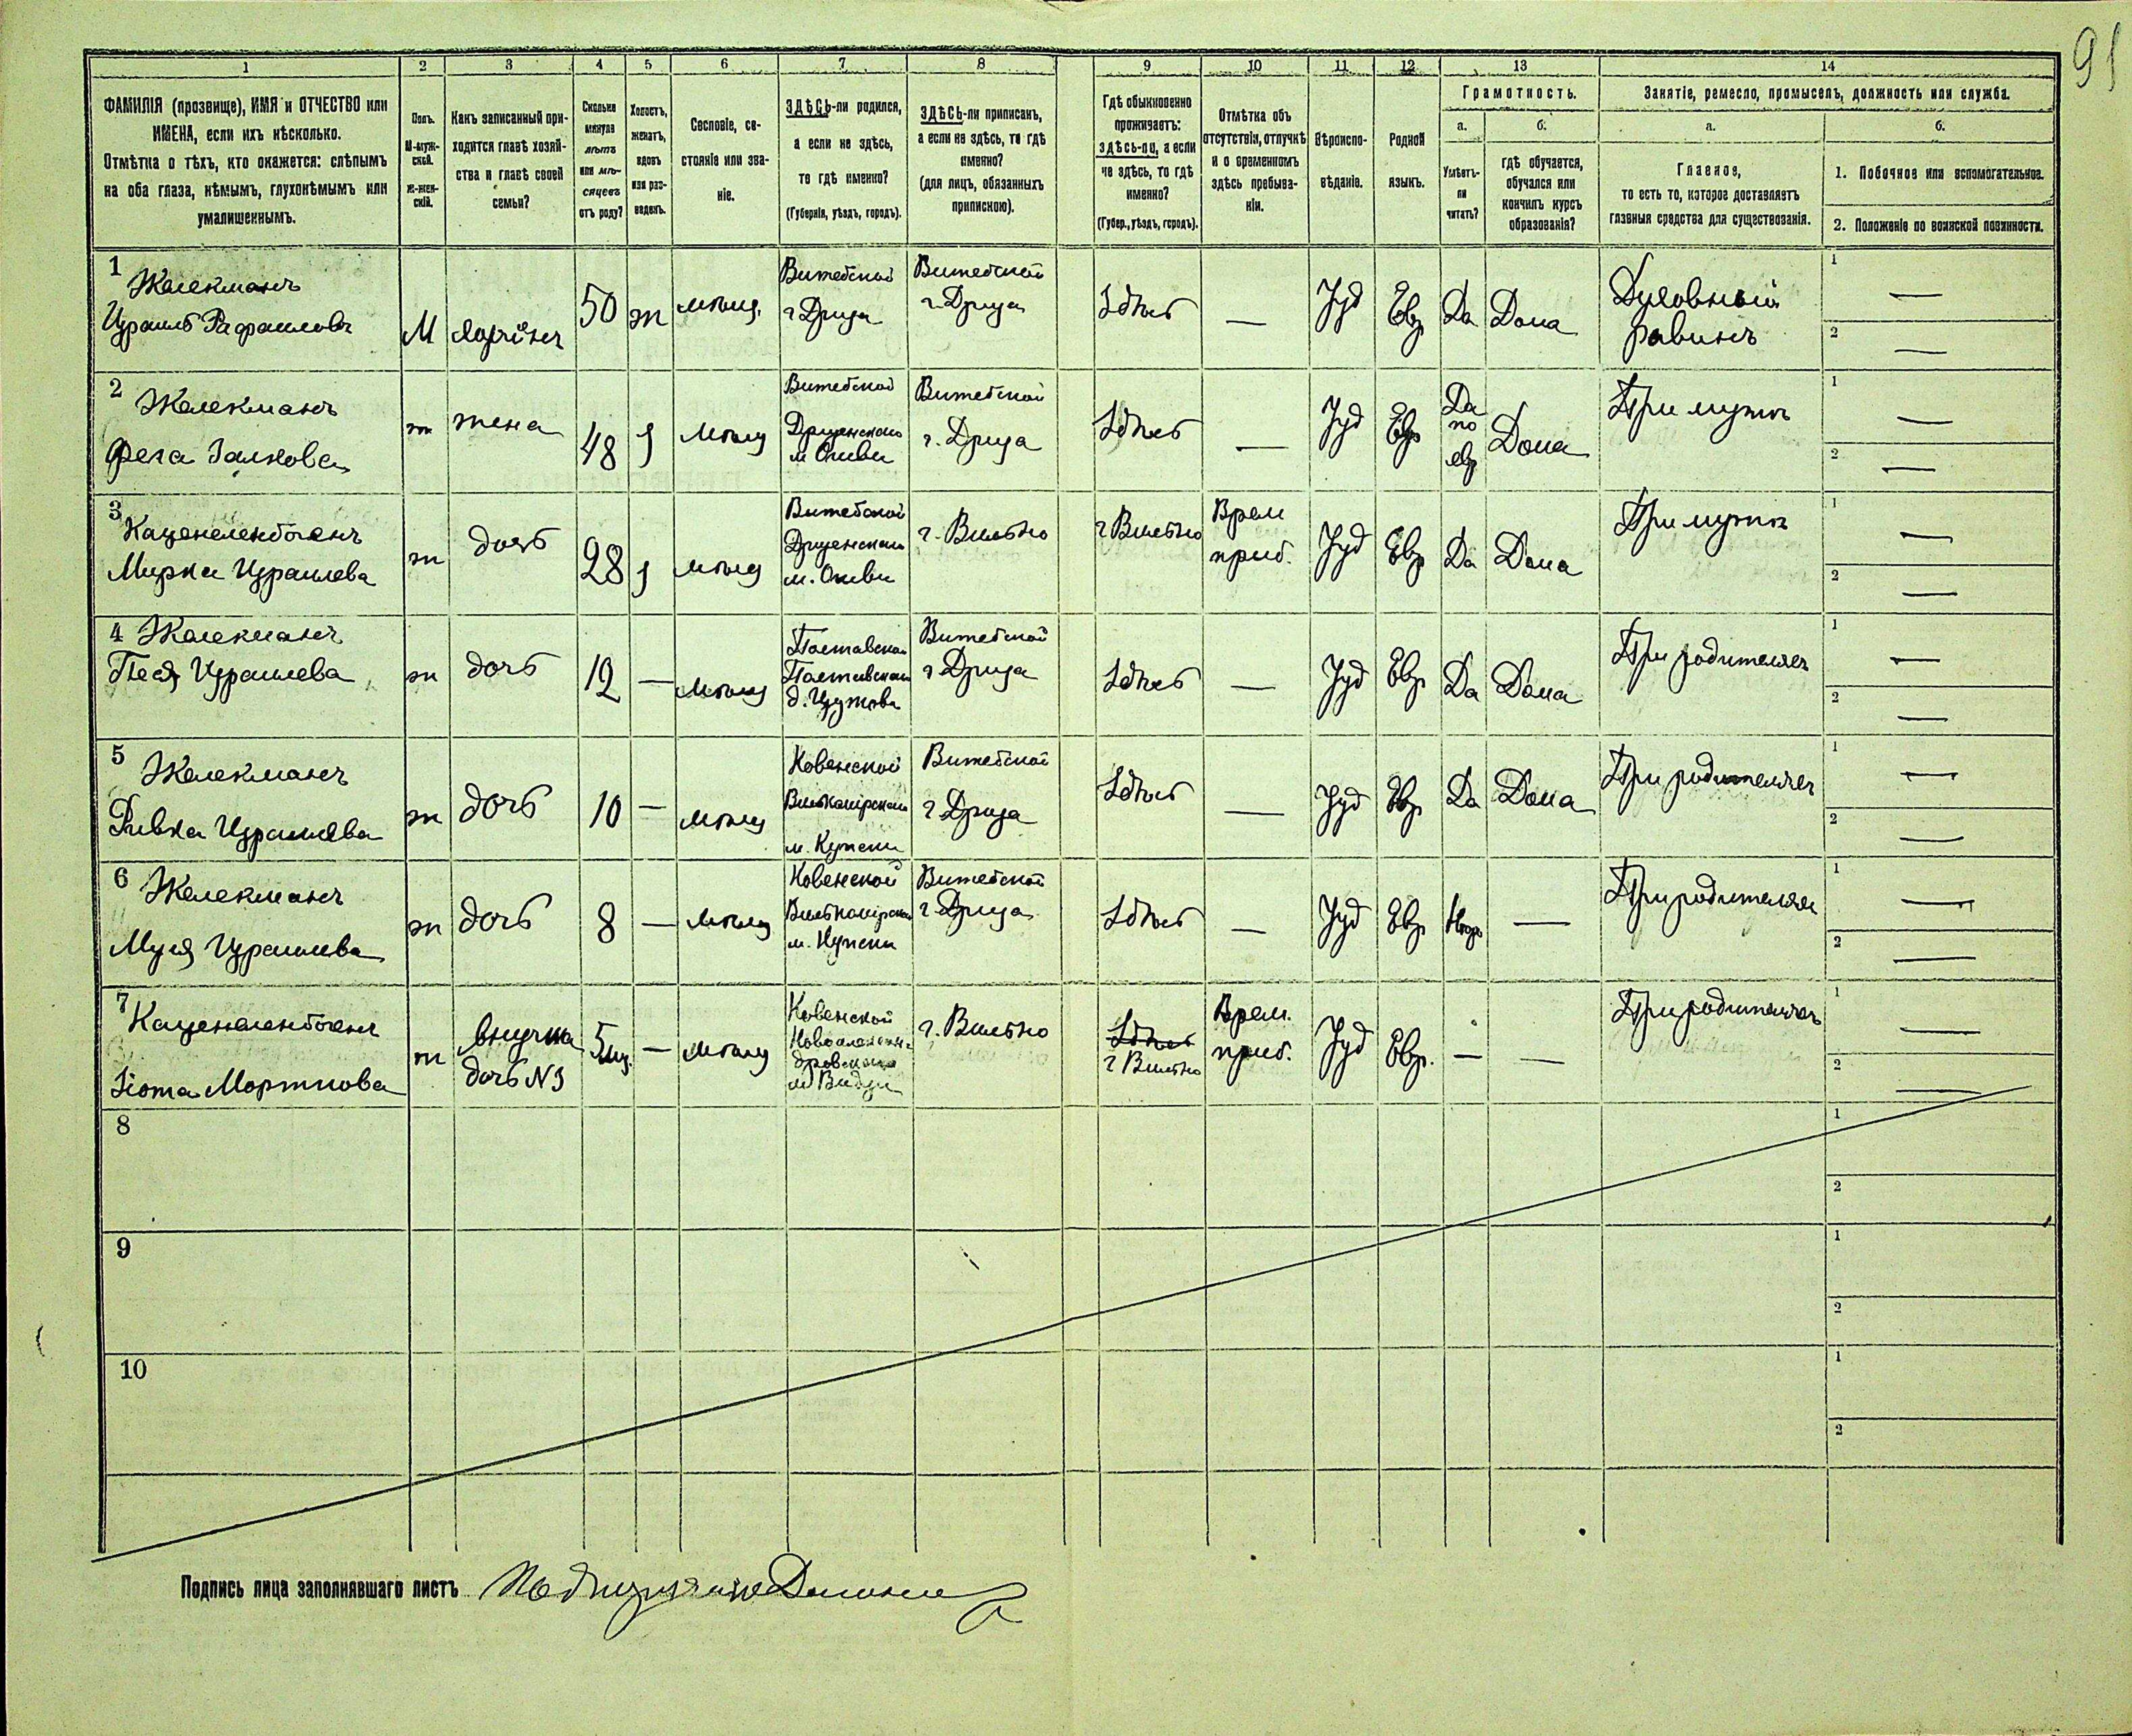 91
1 2 3 4 5 6 7 8 9 10 11 12 13 14
ФАМИЛІЯ (прозвище), ИМЯ и ОТЧЕСТВО или
ИМЕНА, если ихъ нѣсколько.
Отмѣтка о тѣхъ, кто окажется: слѣпымъ
на оба глаза, нѣмымъ, глухонѣмымъ или
умалишеннымъ.
Полъ.
М-муж-
ской.
Ж-жен-
скій.
Какъ записанный при-
ходится главѣ хозяй-
ства и главѣ своей
семьи?
Сколько
минуло
лѣтъ
или мѣ-
сяцевъ
отъ роду?
Холостъ,
женатъ,
вдовъ
или раз-
веденъ.
Сословіе, со-
стояніе или зва-
ніе.
ЗДѢСЬ-ли родился,
а если не здѣсь,
то гдѣ именно?
(Губернія, уѣздъ, городъ).
ЗДѢСЬ-ли приписанъ,
а если не здѣсь, то гдѣ
именно?
(для лицъ, обязанныхъ
припискою).
Гдѣ обыкновенно
проживаетъ:
здѣсь-ли, а если
не здѣсь, то гдѣ
именно?
(Губер., уѣздъ, городъ).
Отмѣтка объ
отсутствіи, отлучкѣ
и о временномъ
здѣсь пребыва-
ніи.
Вѣроиспо-
вѣданіе.
Родной
языкъ.
Грамотность.
а.
Умѣетъ-
ли
читать?
б.
гдѣ обучается,
обучался или
кончилъ курсъ
образованія?
Занятіе, ремесло, промыселъ, должность или служба.
а.
Главное,
то есть то, которое доставляетъ
главныя средства для существованія.
б.
1. Побочное или вспомогательное.
2. Положеніе по воинской повинности.
1
Жалекманъ
Израиль Рафаиловъ
М
хозяинъ
50
ж
мѣщ.
Витебской
г Дриза
Витебской
г Дриза
Здѣсь
—
Іуд
Евр
Да
Дома
Духовный
равинъ
1 —
2 —
2
Желекманъ
Фега Залкова
ж
жена
48
мѣщ
Витебской
Дризенскаго
Витебской
г. Дриза
Здѣсь
—
Іуд
Евр
Да
по
евр
Дома
При мужѣ
1 —
2 —
3
Каценеленбогенъ
Мирка Израилева
ж
дочь
28
мѣщ
Витебской
Дризенскаго
г. Вильно
г Вильно
Врем
приб.
Іуд
Евр
Да
Дома
При мужѣ
1 —
2 —
4 Жалекманъ
Песя Израилева
ж
дочь
12
—
мѣщ
Витебской
г Дриза
Здѣсь
—
Іуд
Евр.
Да
Дома
При родителяхъ
1 —
2 —
5
Желекманъ
Ривка Израилева
ж
дочь
10
—
мѣщ
Ковенской
Вилькомірскаго
м. Купеки
Витебской
г Дриза
Здѣсь
—
Іуд
Евр.
Да
Дома
При родителяхъ
1 —
2 —
6
Желекманъ
Муля Израилева
ж
дочь
8
—
мѣщ
Ковенской
Вилькомірскаго
м. Купеки
Витебской
г Дриза
Здѣсь
—
Іуд
Евр.
—
При родителяхъ
1 —
2 —
7
Каценеленбогенъ
Мортхова
ж
внучка
дочь №3
5 мц.
—
мѣщ
Ковенской
Новоалексан-
дровскаго
м Видзи
г. Вильно
Здѣсь
г Вильно
Врем.
приб.
Іуд
Евр.
—
—
При родителяхъ
1 —
2 —
8
1
2
9
1
2
10
1
2
Подпись лица заполнявшаго листъ